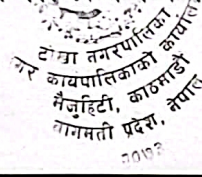 टोखा नगरपालिका
नगर कार्यपालिकाको कार्यालय
मैजुहिटी, काठमाडौं
वागमती प्रदेश, नेपाल
२०७३